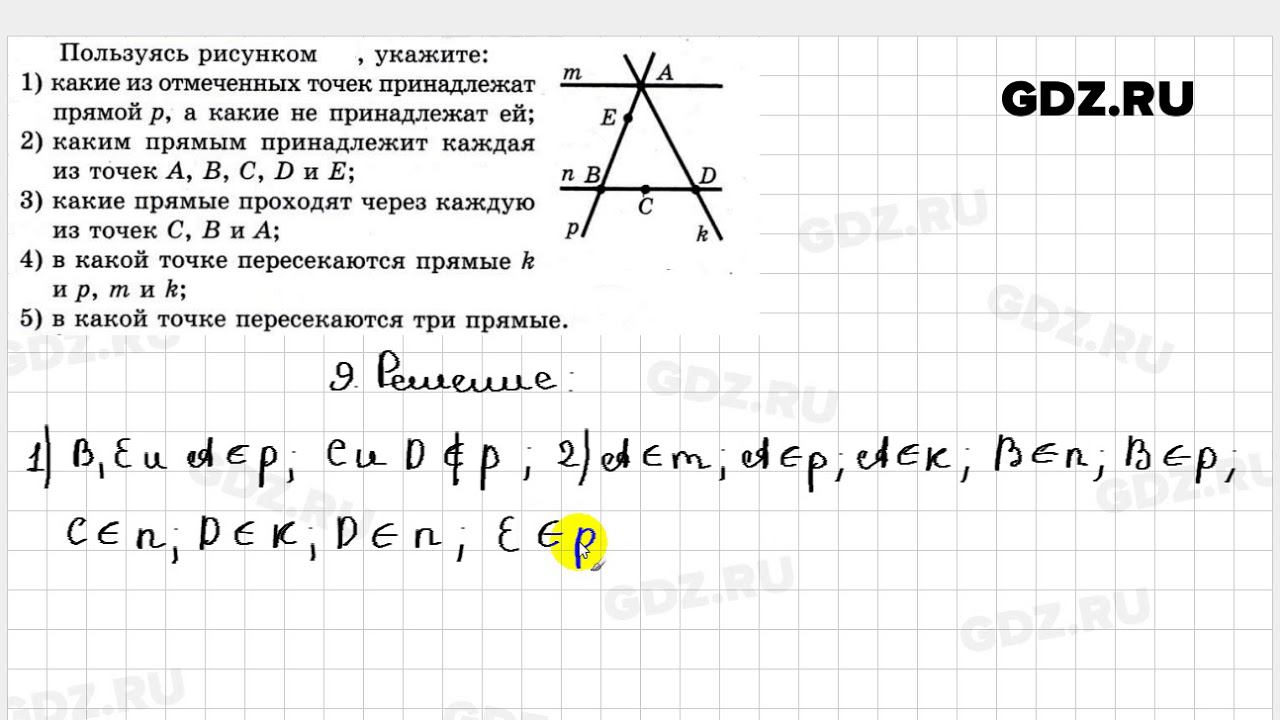 Пользуясь рисунком , укажите:
1) какие из отмеченных точек принадлежат
прямой p, а какие не принадлежат ей;
2) каким прямым принадлежит каждая
из точек A, B, C, D и E;
3) какие прямые проходят через каждую
из точек C, B и A;
4) в какой точке пересекаются прямые k
и p, m и k;
5) в какой точке пересекаются три прямые.
m A
E
n B D
C
p k
GDZ.RU
9. Решение:
1) B, E и A ∈ p; C и D ∉ p; 2) A ∈ m; A ∈ p; A ∈ к; B ∈ n; B ∈ p;
C ∈ n; D ∈ к; D ∈ n; E ∈ p
GDZ.RU
GDZ.RU
GDZ.RU
GDZ.RU
GDZ.RU
GDZ.RU
GDZ.RU
GDZ.RU
GDZ.RU
GDZ.RU